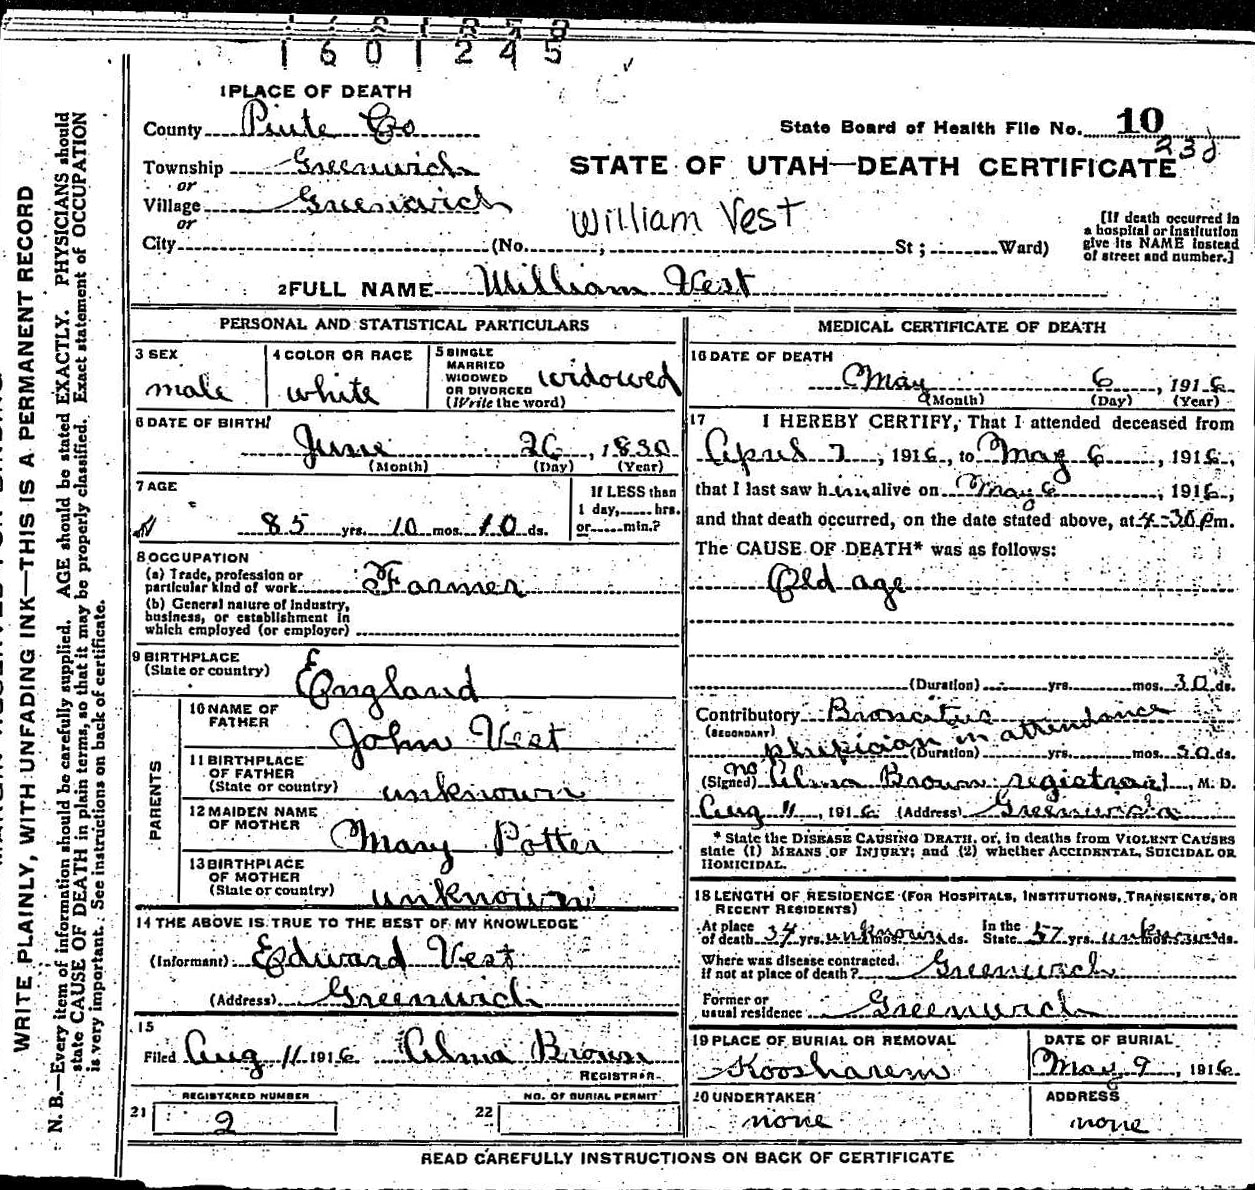 1601245
1 PLACE OF DEATH
County Piute Co
State Board of Health File No. 10
Township Greenwich
or
STATE OF UTAH—DEATH CERTIFICATE
Village Greenwich
or
William Vest
City (No. ; St ; Ward)
[If death occurred in
a hospital or institution
give its NAME instead
of street and number.]
2 FULL NAME William Vest
PERSONAL AND STATISTICAL PARTICULARS
3 SEX
male
4 COLOR OR RACE
white
5 SINGLE
MARRIED
WIDOWED
OR DIVORCED
(Write the word)
widowed
6 DATE OF BIRTH
June 26, 1830
(Month) (Day) (Year)
7 AGE
85 yrs. 10 mos. 10 ds.
If LESS than
1 day, hrs.
or min.?
8 OCCUPATION
(a) Trade, profession or
particular kind of work Farmer
(b) General nature of industry,
business, or establishment in
which employed (or employer)
9 BIRTHPLACE
(State or country)
England
PARENTS
10 NAME OF
FATHER
John Vest
11 BIRTHPLACE
OF FATHER
(State or country)
unknown
12 MAIDEN NAME
OF MOTHER
Mary Potter
13 BIRTHPLACE
OF MOTHER
(State or country)
unknown
14 THE ABOVE IS TRUE TO THE BEST OF MY KNOWLEDGE
(Informant) Edward Vest
(Address) Greenwich
15
Filed Aug 11 1916 Alma Brown
REGISTRAR
REGISTERED NUMBER
21 2
NO. OF BURIAL PERMIT
22
MEDICAL CERTIFICATE OF DEATH
16 DATE OF DEATH
May 6, 1916
(Month) (Day) (Year)
17 I HEREBY CERTIFY, That I attended deceased from
April 7, 1916, to May 6, 1916,
that I last saw him alive on May 6, 1916,
and that death occurred, on the date stated above, at 4-30 Pm.
The CAUSE OF DEATH* was as follows:
Old age
(Duration) yrs. mos. 30 ds.
Contributory Broncitus
(SECONDARY)
no physician in attendance
(Duration) yrs. mos. 30 ds.
(Signed) Alma Brown registrar, M. D.
Aug 11, 1916 (Address) Greenwich
* State the DISEASE CAUSING DEATH, or, in deaths from VIOLENT CAUSES
state (1) MEANS OF INJURY; and (2) whether ACCIDENTAL, SUICIDAL OR
HOMICIDAL.
18 LENGTH OF RESIDENCE (FOR HOSPITALS, INSTITUTIONS, TRANSIENTS, OR
RECENT RESIDENTS)
At place
of death 34 yrs. unknown mos. ds.
In the
State 57 yrs. unknown mos. ds.
Where was disease contracted,
if not at place of death? Greenwich
Former or
usual residence Greenwich
19 PLACE OF BURIAL OR REMOVAL
Koosharem
DATE OF BURIAL
May 9, 1916
20 UNDERTAKER
none
ADDRESS
none
READ CAREFULLY INSTRUCTIONS ON BACK OF CERTIFICATE
WRITE PLAINLY, WITH UNFADING INK—THIS IS A PERMANENT RECORD
N. B.—Every item of information should be carefully supplied. AGE should be stated EXACTLY. PHYSICIANS should
state CAUSE OF DEATH in plain terms, so that it may be properly classified. Exact statement of OCCUPATION
is very important. See instructions on back of certificate.